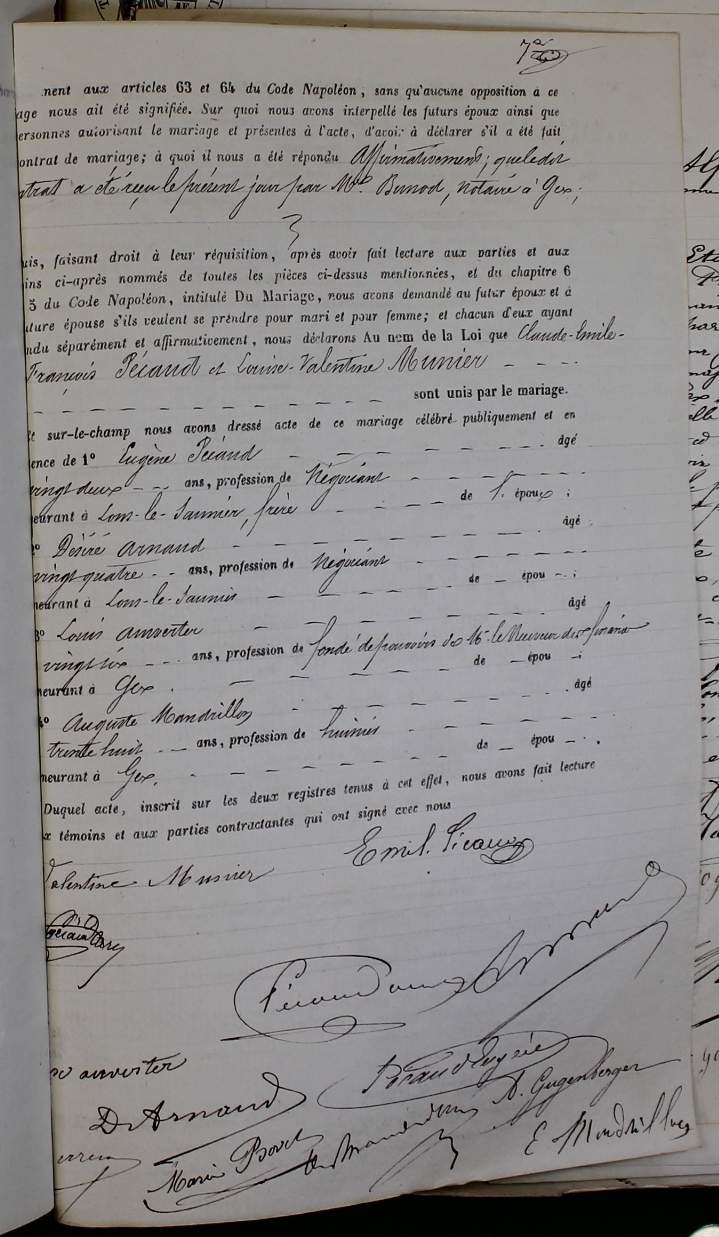 nent aux articles 63 et 64 du Code Napoléon, sans qu'aucune opposition à ce
age nous ait été signifiée. Sur quoi nous avons interpellé les futurs époux ainsi que
ersonnes autorisant le mariage et présentes à l'acte, d'avoir à déclarer s'il a été fait
ontrat de mariage; à quoi il nous a été répondu Affirmativement; que ledit
ntrat a été reçu le présent jour par Me Bunod, notaire à Gex;
uis, faisant droit à leur réquisition, après avoir fait lecture aux parties et aux
ins ci-après nommés de toutes les pièces ci-dessus mentionnées, et du chapitre 6
5 du Code Napoléon, intitulé Du Mariage, nous avons demandé au futur époux et à
uture épouse s'ils veulent se prendre pour mari et pour femme; et chacun d'eux ayant
ndu séparément et affirmativement, nous déclarons Au nom de la Loi que Claude-Emile-
François Pécaud et Louise-Valentine Munier
sont unis par le mariage.
Et sur-le-champ nous avons dressé acte de ce mariage célébré publiquement et en
ence de 1º Eugène Pécaud âgé
vingt deux ans, profession de Négociant
meurant à Lons-le-Saunier, frère de l' époux;
2º Désiré Arnaud âgé
vingt quatre ans, profession de Négociant
meurant à Lons-le-Saunier de épou ;
3º Louis Anverter âgé
vingt six ans, profession de fondé de pouvoirs de Mr le Receveur des finances
meurant à Gex. de épou ;
4º Auguste Mandrillon âgé
trente huit ans, profession de huissier
meurant à Gex. de épou .
Duquel acte, inscrit sur les deux registres tenus à cet effet, nous avons fait lecture
x témoins et aux parties contractantes qui ont signé avec nous
Valentine Munier Emil. Pécaud
anverter Pécaud Eugène
D Arnaud A. Gugenberger
Marie Bovet E Mandrillon